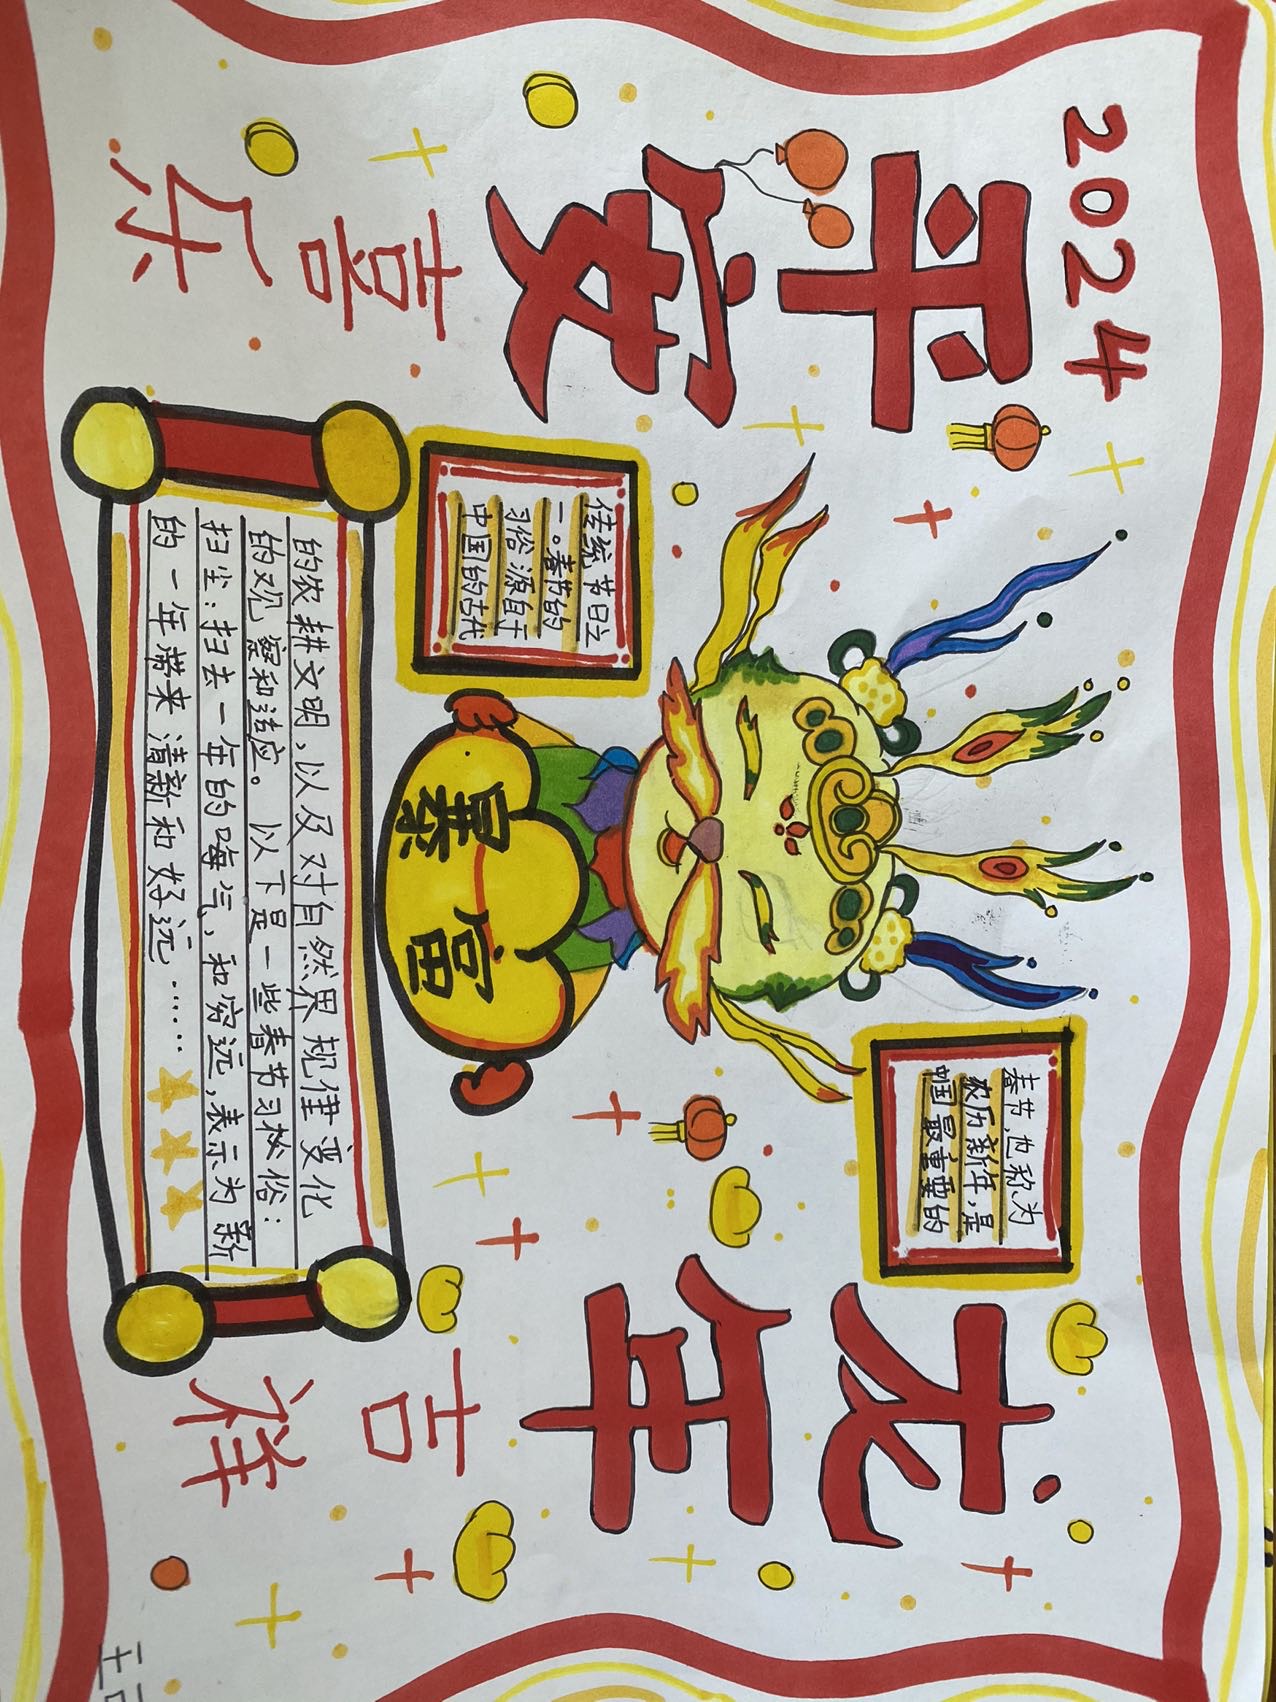 2024
平安
龙年
春节,也称为
农历新年,是
中国最重要的
传统节日之
一。春节的
习俗源自于
中国的古代
暴富
喜乐
吉祥
的农耕文明,以及对自然界规律变化
的观察和适应。以下是一些春节习俗:
扫尘:扫去一年的晦气,和穷运,表示为新
的一年带来清新和好运……